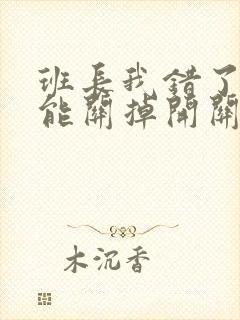 班长我错了
能關掉開關
木沉香